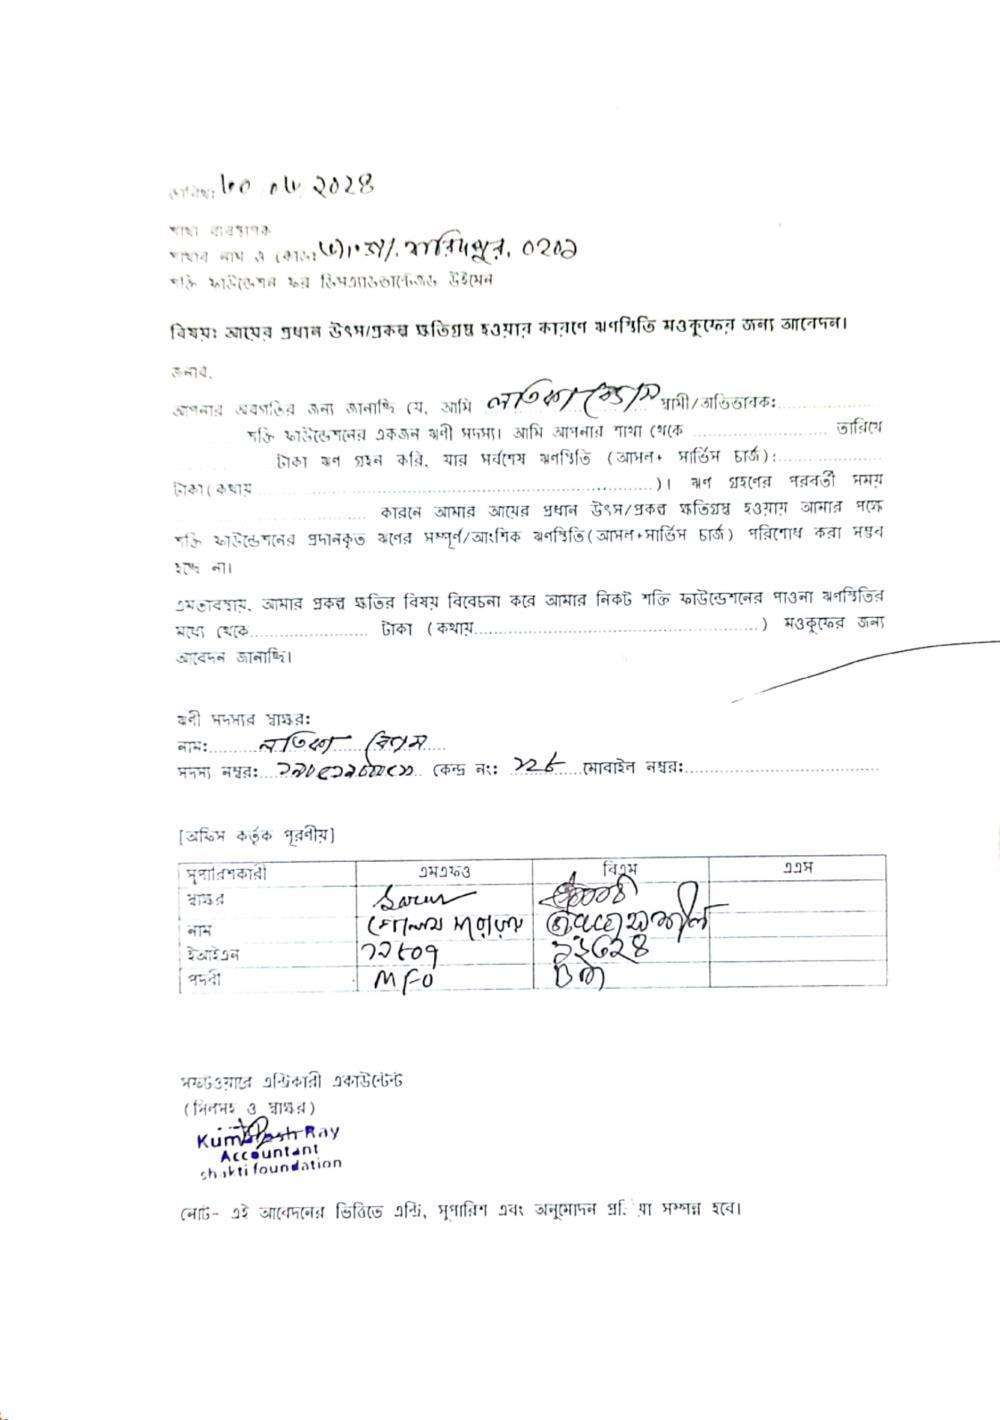 তারিখ: ২০২৪
শাখা ব্যবস্থাপক
শাখার নাম ও কোড: ফরিদপুর, ০২০১
শক্তি ফাউন্ডেশন ফর ডিসএ্যাডভান্টেজড উইমেন
বিষয়: আয়ের প্রধান উৎস/প্রকল্প ক্ষতিগ্রস্থ হওয়ার কারণে ঋণস্থিতি মওকুফের জন্য আবেদন।
জনাব,
আপনার অবগতির জন্য জানাচ্ছি যে, আমি লতিকা বেগম স্বামী/অভিভাবক:..................
শক্তি ফাউন্ডেশনের একজন ঋণী সদস্য। আমি আপনার শাখা থেকে ........................ তারিখে
টাকা ঋণ গ্রহন করি, যার সর্বশেষ ঋণস্থিতি (আসল+ সার্ভিস চার্জ):..................
টাকা(কথায়....................................................)। ঋণ গ্রহণের পরবর্তী সময়
.................... কারনে আমার আয়ের প্রধান উৎস/প্রকল্প ক্ষতিগ্রস্থ হওয়ায় আমার পক্ষে
শক্তি ফাউন্ডেশনের প্রদানকৃত ঋণের সম্পূর্ণ/আংশিক ঋণস্থিতি(আসল+সার্ভিস চার্জ) পরিশোধ করা সম্ভব
হচ্ছে না।
এমতাবস্থায়, আমার প্রকল্প ক্ষতির বিষয় বিবেচনা করে আমার নিকট শক্তি ফাউন্ডেশনের পাওনা ঋণস্থিতির
মধ্যে থেকে.................... টাকা (কথায়................................................) মওকুফের জন্য
আবেদন জানাচ্ছি।
ঋণী সদস্যর স্বাক্ষর:
নাম: লতিকা বেগম
সদস্য নম্বর: কেন্দ্র নং: ১২৮ মোবাইল নম্বর:................................
[অফিস কর্তৃক পূরণীয়]
সুপারিশকারী এমএফও বিএম এএস
স্বাক্ষর
নাম
ইআইএন ১২৮০৭ ১৬২৪
পদবী MFO BM
সফটওয়্যারে এন্ট্রিকারী একাউন্টেন্ট
(সিলসহ ও স্বাক্ষর)
Ray
Accountant
shakti foundation
নোট- এই আবেদনের ভিত্তিতে এন্ট্রি, সুপারিশ এবং অনুমোদন সম্পন্ন হবে।